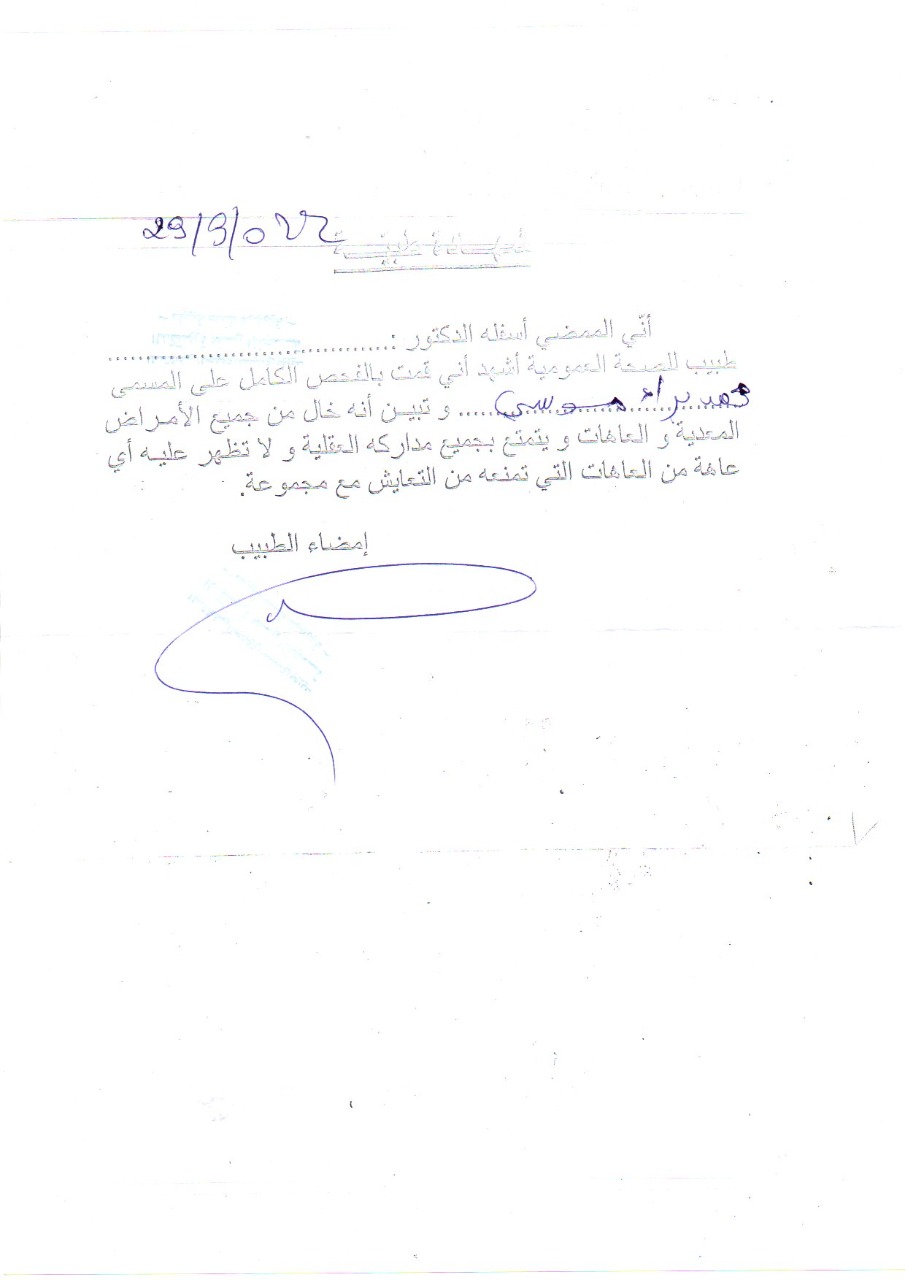 29/9/022
شهادة طبية
أنّي الممضي أسفله الدكتور :......................................
طبيب للصحة العمومية أشهد أني قمت بالفحص الكامل على المسمى
براء موسى ..... و تبين أنه خال من جميع الأمراض
المعدية و العاهات و يتمتع بجميع مداركه العقلية و لا تظهر عليه أي
عاهة من العاهات التي تمنعه من التعايش مع مجموعة.
إمضاء الطبيب